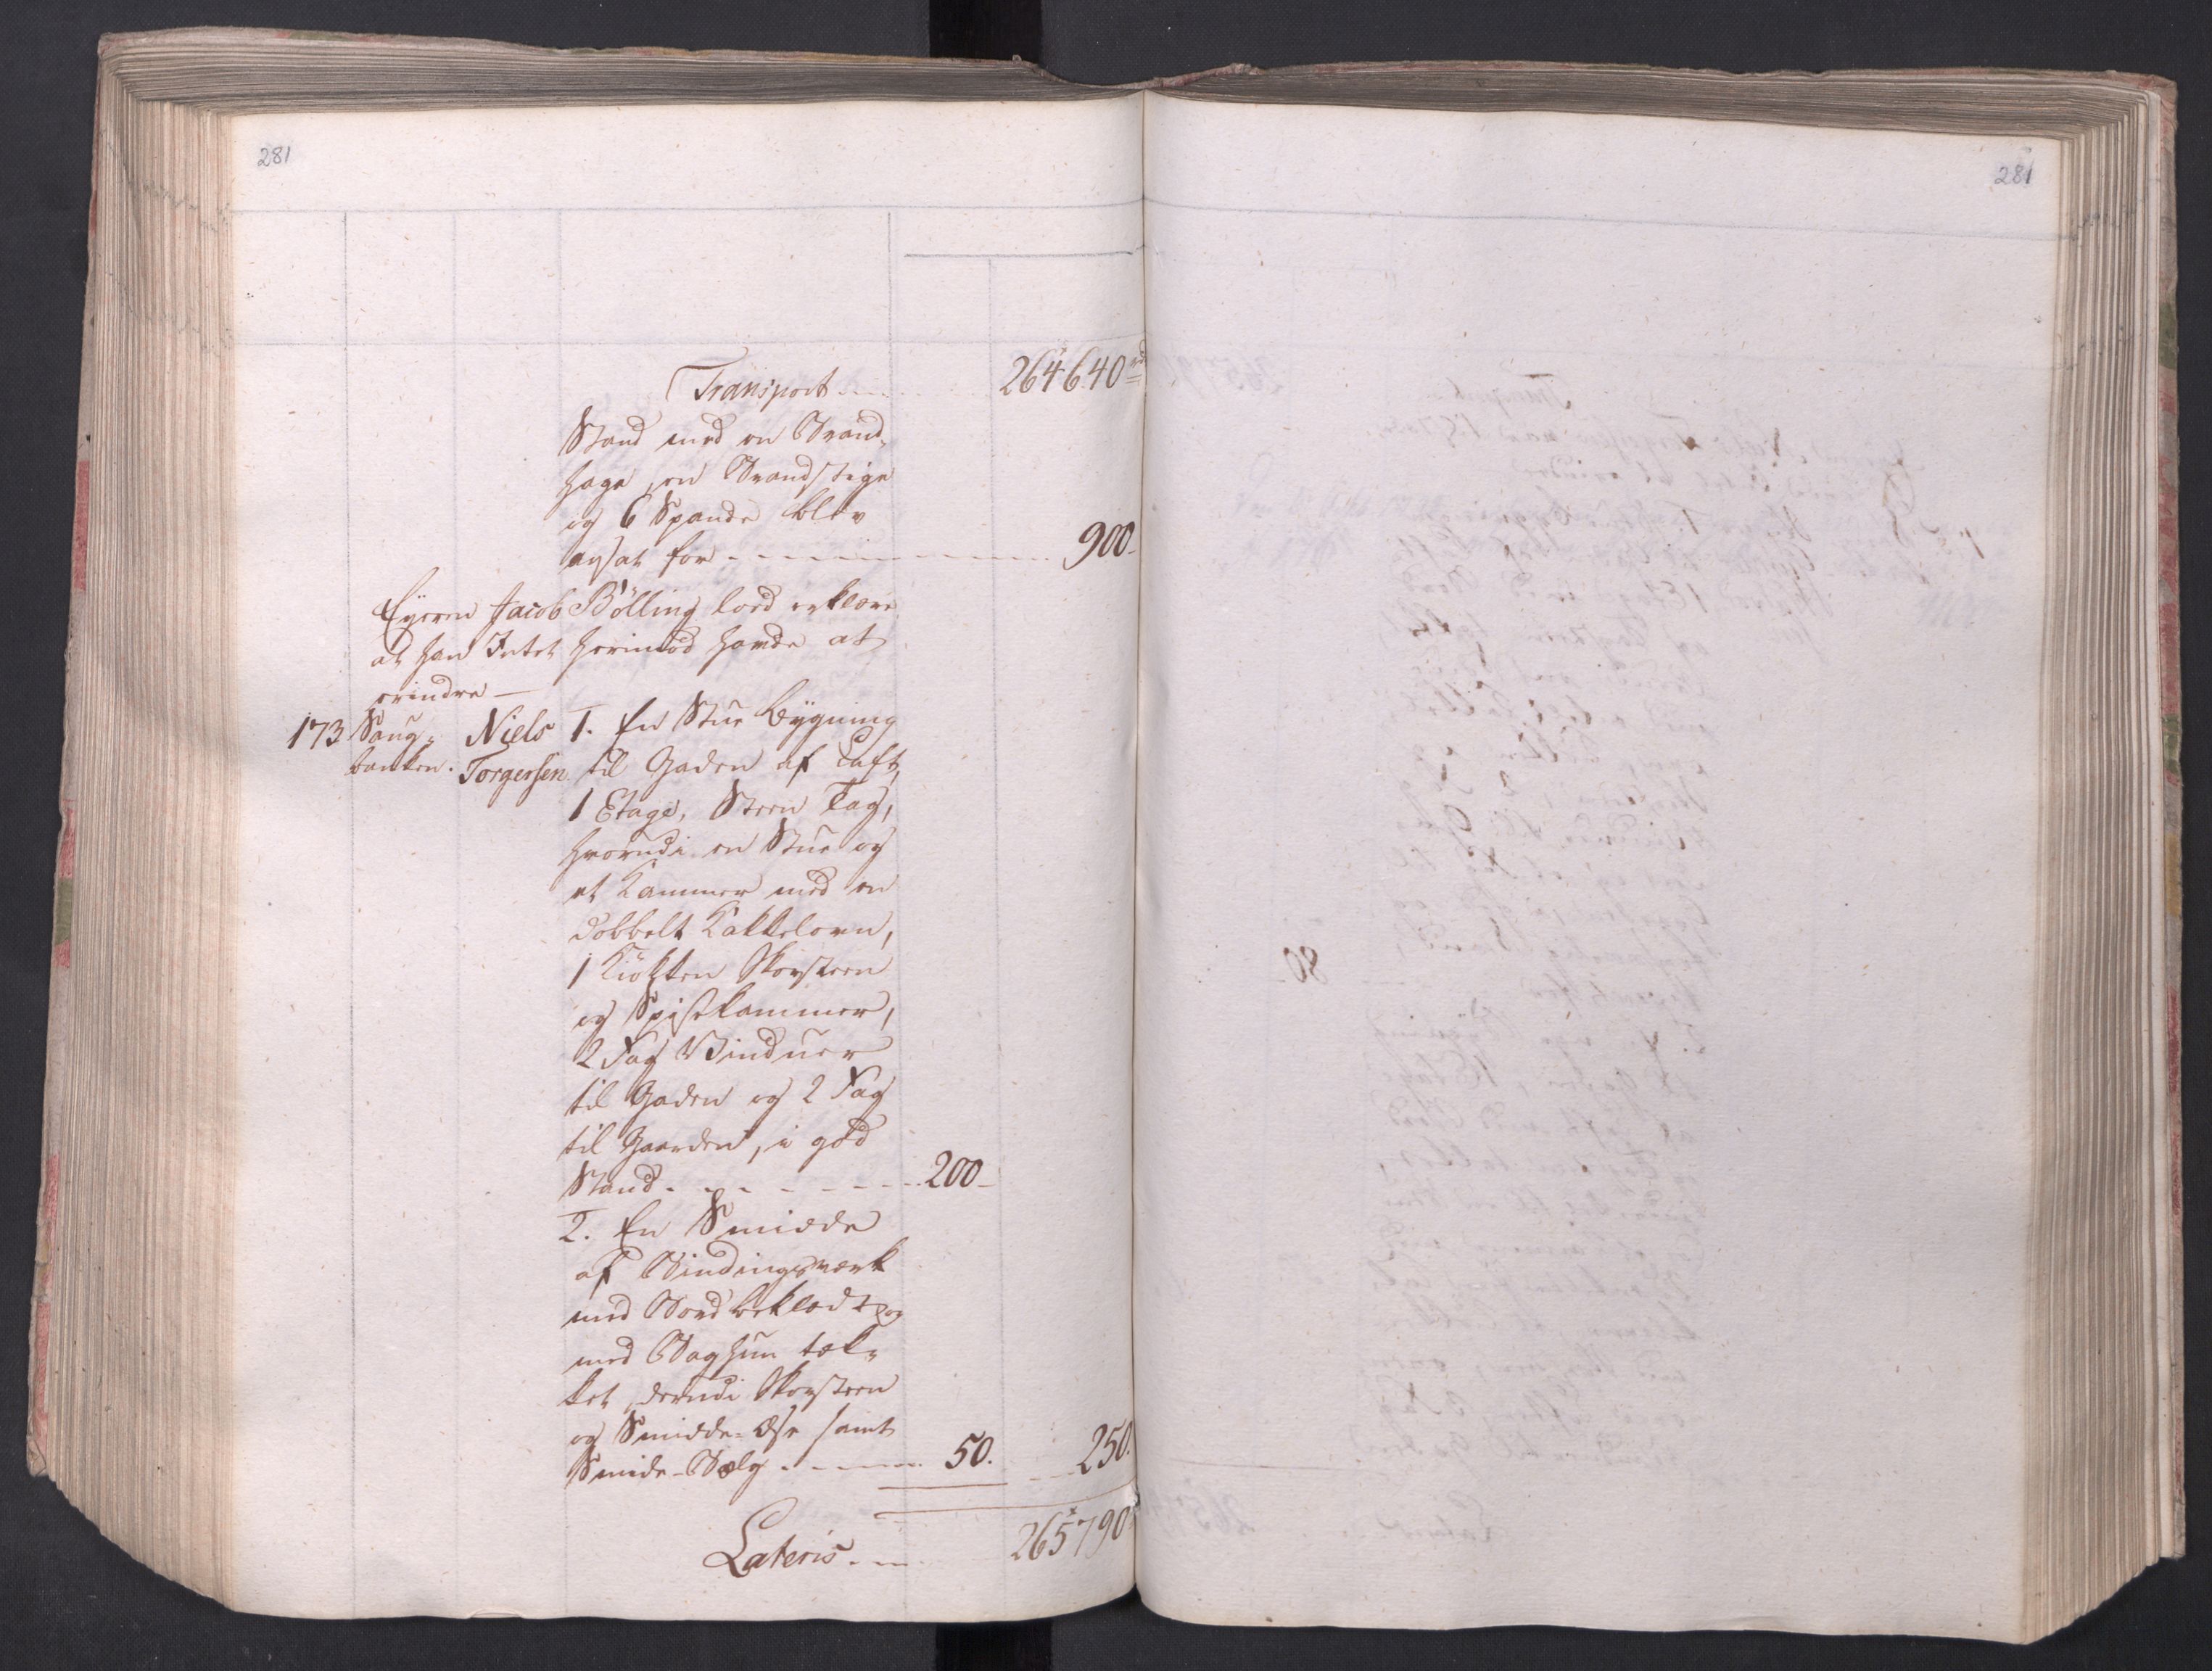 281
281
Transport 264640 rd
Stand med en Brand-
hage, en Brandstige
og 6 Spande blev
ansat for 900-
Eyeren Jacob Bölling lod erklære
at han Intet herimod havde at
erindre —
173 Saug- Niels 1. En Stue Bygning
banken. Torgersen til Gaden af Laft,
1 Etage, Steen Tag,
hvorudi en Stue og
et Kammer med en
dobbelt Kakkelovn,
1 Kiökken Skorsteen
og Spisekammer,
2 Fag Vinduer
til Gaden og 2 Fag
til Gaarden, i god
Stand 200-
2. En Smidde
af Bindingsværk
med Bord beklædt og
med Baghun tæk-
ket, derudi Skorsteen
og Smidde-Esse samt
Smide-Bælg 50. 250.
Lateris 265790